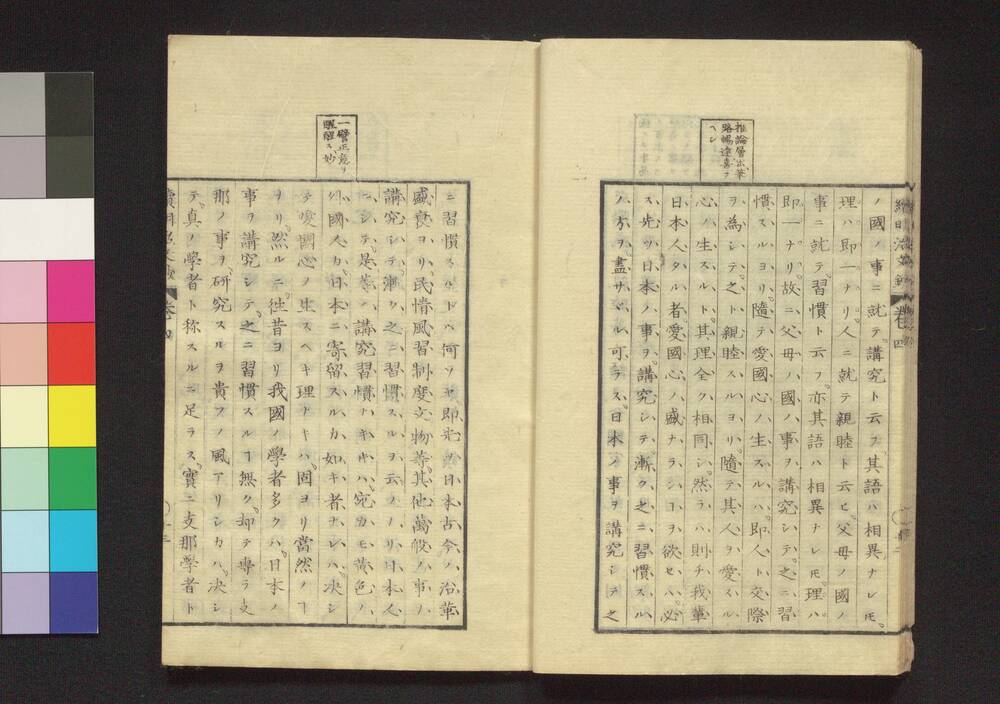 推論層出筆
路暢達喜フ
ヘシ
續明治文鈔
卷四
ノ國ノ事ニ就テ講究ト云フ其語ハ相異ナレ𪜈。
理ハ即一ナリ人ニ就テ親睦ト云ヒ父母ノ國ノ
事ニ就テ習慣ト云フ亦其語ハ相異ナレ𪜈。理ハ
即一ナリ。故ニ父母ノ國ノ事ヲ講究シテ。之ニ習
慣スルヨリ。隨テ愛國心ノ生スルハ。即人ト交際
ヲ為シテ。之ト親睦スルヨリ。隨テ其人ヲ愛スル
心ノ生スルト。其理全ク相同シ。然ラハ則チ我輩
日本人タル者愛國心ノ盛ナランヿヲ欲セハ。必
ス先ツ日本ノ事ヲ。講究シテ漸ク之ニ習慣スル
ノ方ヲ。盡サヾル可ラス。日本ノ事ヲ講究シテ之
一譬正意ヲ
醒ス妙
ニ習慣スルトハ何ソヤ即先ツ日本古今ノ沿革
盛衰ヨリ。民情風習制度文物等。其他萬般ノ事ヲ
講究シテ。漸ク之ニ習慣スルヲ云フナリ。日本人
ニシテ。是等ノ講究習慣ナキ𪜈ハ。宛カモ黄色ノ
外國人カ。日本ニ寄留スルカ如キ者ナレハ。决シ
テ愛國心ノ生スヘキ理ナキハ。固ヨリ當然ノヿ
ナリ。然ルニ往昔ヨリ我國ノ學者多クハ。日本ノ
事ヲ講究シテ。之ニ習慣スルヿ無ク。却テ專ラ支
那ノ事ヲ研究スルヲ貴フノ風アリシカハ。决シ
テ真ノ學者ト称スルニ足ラス。實ニ支那學者ト